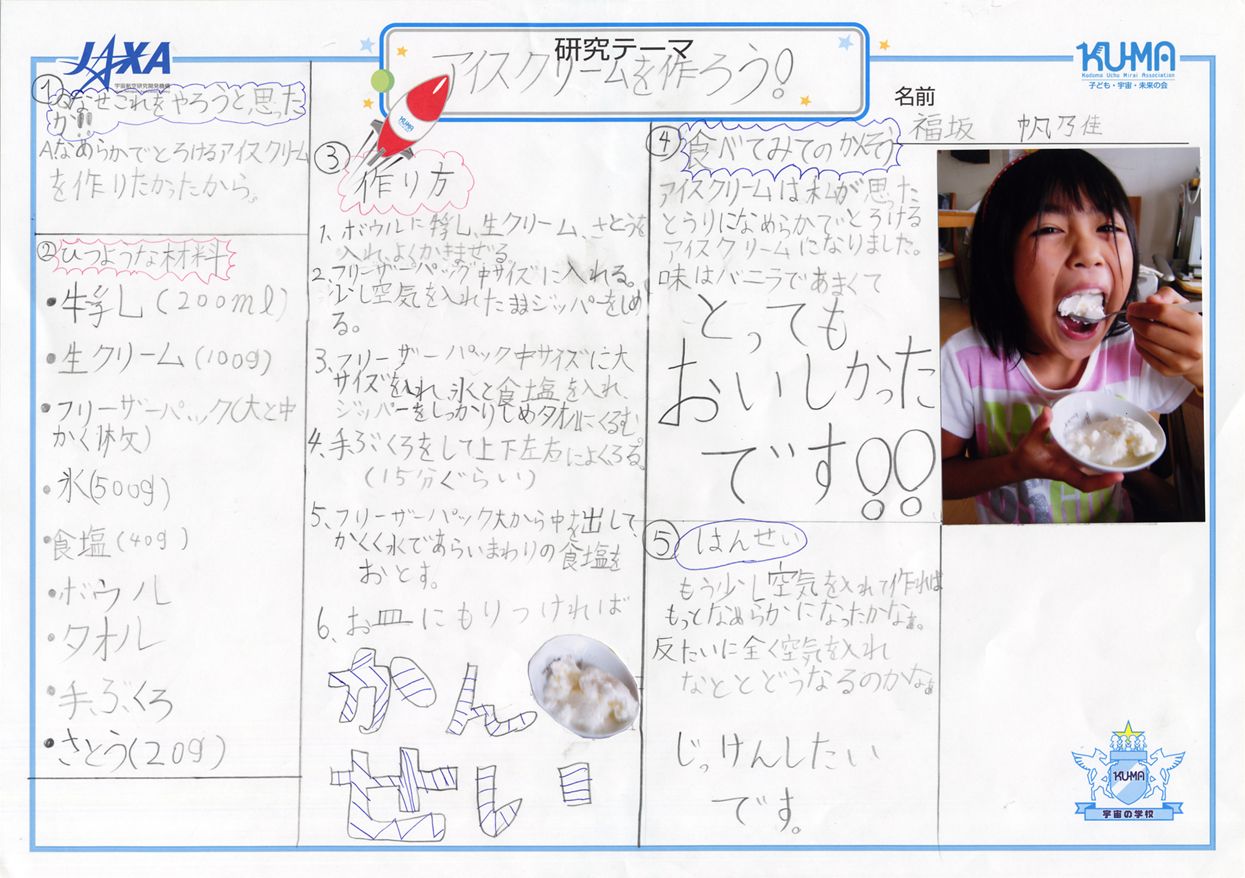 JAXA
宇宙航空研究開発機構
研究テーマ
アイスクリームを作ろう!
KUMA
Kodomo Uchu Mirai Association
子ども・宇宙・未来の会
名前
福坂 帆乃佳
KUMA
①Qなぜこれをやろうと思った
か!!
A.なめらかでとろけるアイスクリーム
を作りたかったから。
②ひつような材料
・牛乳し(200ml)
・生クリーム(100g)
・フリーザーパック(大と中
かく1枚)
・氷(500g)
・食塩(40g)
・ボウル
・タオル
・手ぶくろ
・さとう(20g)
③
作り方
1、ボウルに牛乳し、生クリーム、さとうを
入れ、よくかきまぜる。
2、フリーザーパック中サイズに入れる。
少し空気を入れたままジッパーをしめ
る。
3、フリーザーパック中サイズに大
サイズを入れ、氷と食塩を入れ、
ジッパーをしっかりしめタオルにくるむ。
4、手ぶくろをして上下左右によくふる。
(15分ぐらい)
5、フリーザーパック大から中を出して、
かくく水であらいまわりの食塩を
おとす。
6、お皿にもりつければ
かん
せい!
④食べてみてのかんそう
アイスクリームは私が思った
とうりになめらかでとろける
アイスクリームになりました。
味はバニラであまくて
とっても
おいしかった
です!!
⑤はんせい
もう少し空気を入れて作れば
もっとなめらかになったかなぁ。
反たいに全く空気を入れ
なととどうなるのかなぁ
じっけんしたい
です。
KUMA
宇宙の学校